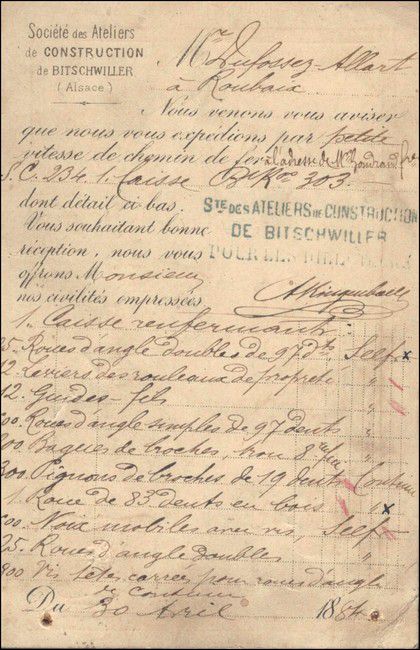 Société des Ateliers
de CONSTRUCTION
de BITSCHWILLER
(Alsace)
Mr Dufossez-Allart
à Roubaix
Nous venons vous aviser
que nous vous expédions par petite
vitesse de chemin de fer à l'adresse de Mr
S.C. 234. 1. Caisse Bko 303.
dont détail ci-bas.
Vous souhaitant bonne
réception, nous vous
offrons Monsieur
nos civilités empressées
STE DES ATELIERS DE CONSTRUCTION
DE BITSCHWILLER
POUR LES DIRECTEURS
1. Caisse renfermant:
25. Roues d'angle doubles de 97 dts Self x
12. Leviers des rouleaux de propreté "
12. Guides-fils "
Roues d'angle simples de 97 dents "
Bagues de broches, trou 8 "
300 Pignons de broches de 19 dents Continu
1. Roue de 83 dents en bois " x
Noix mobiles avec vis, Self
25. Roues d'angle doubles "
Vis têtes carrées pour roues d'angle
de Continu
Du 30 Avril 1884